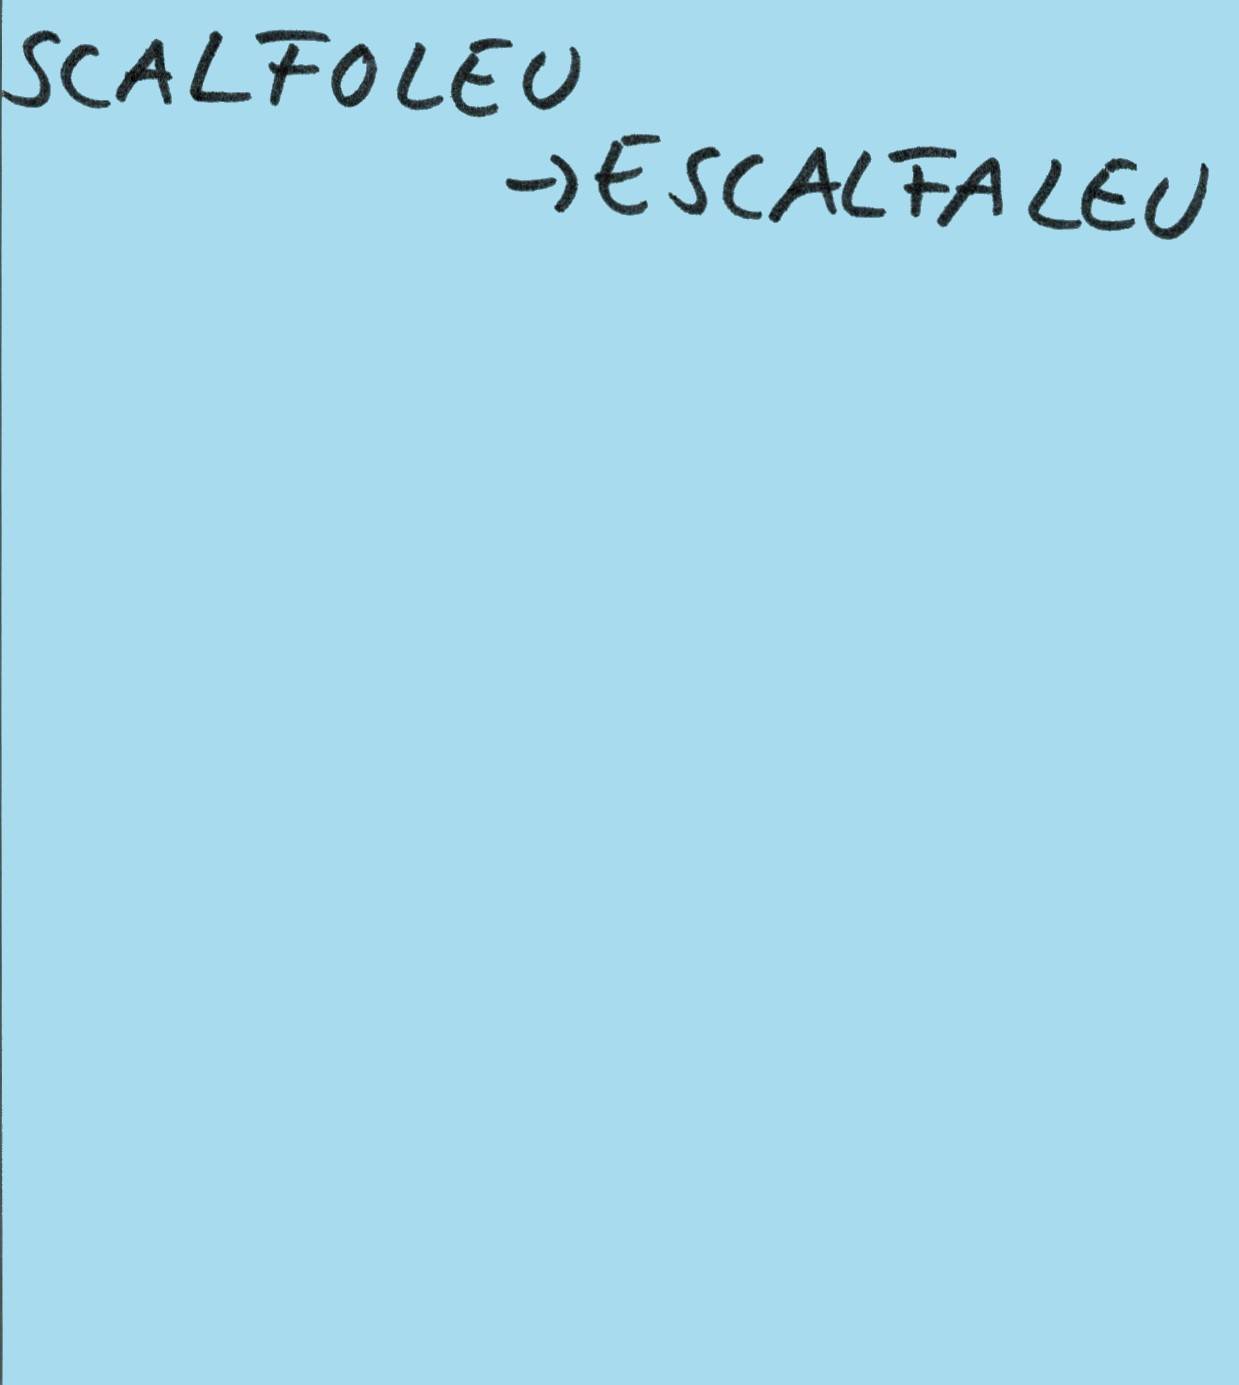 SCALFOLEU
→ESCALFALEU